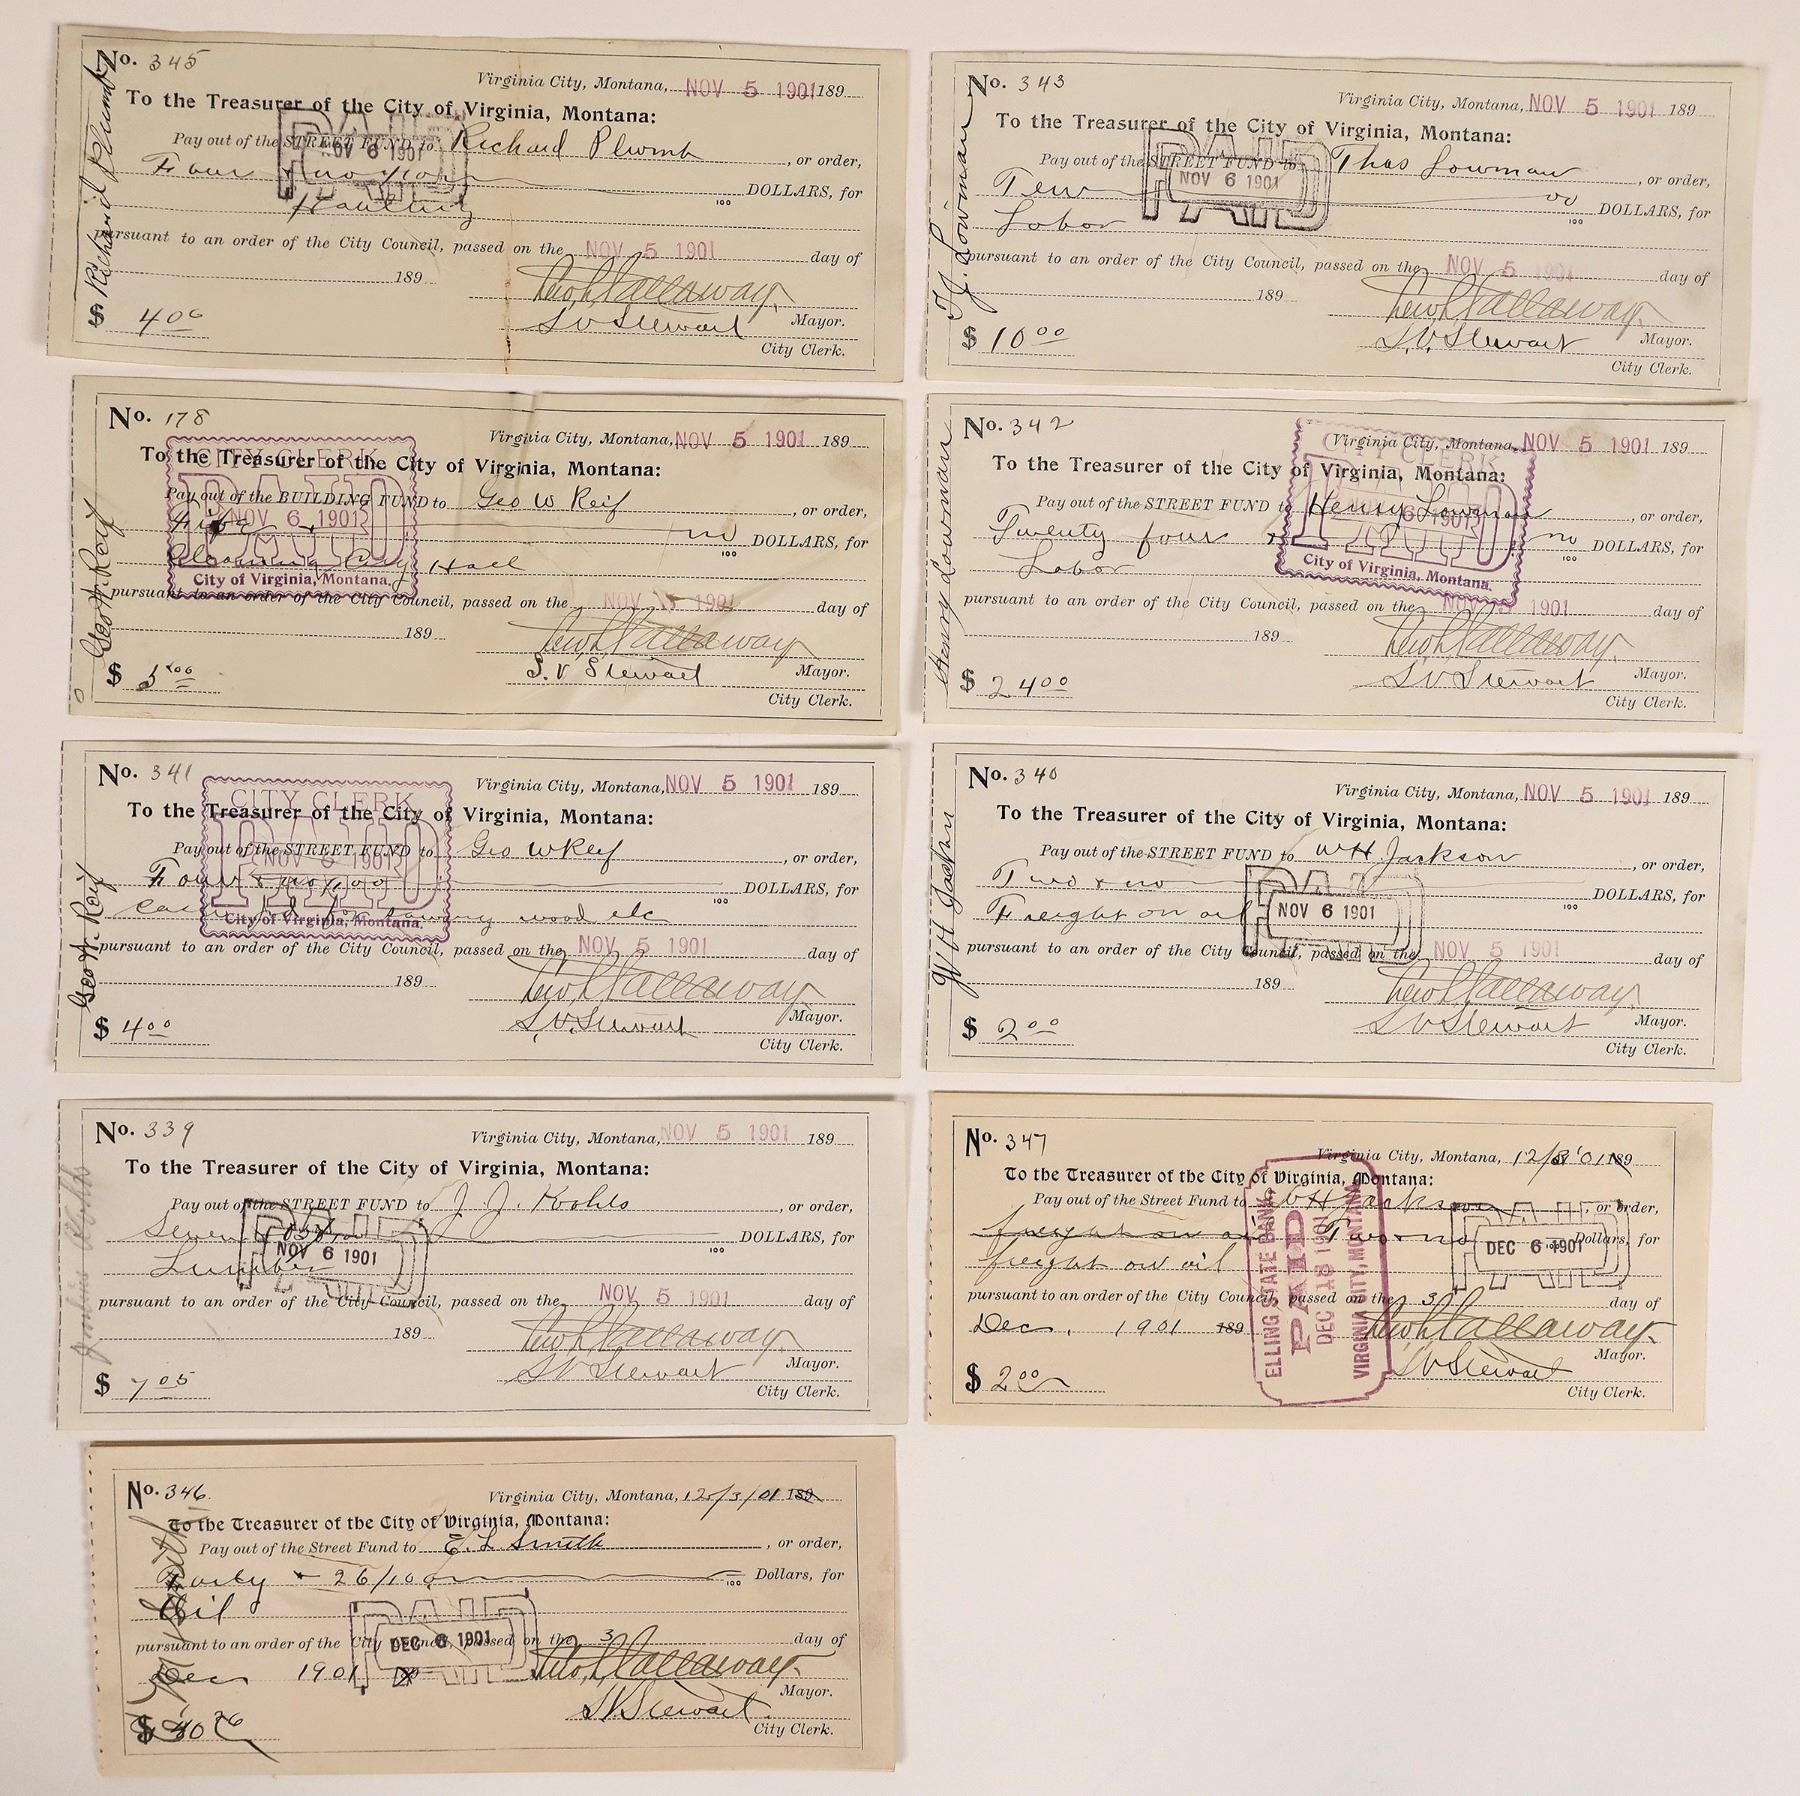 No. 345
Virginia City, Montana, NOV 5 1901 189
To the Treasurer of the City of Virginia, Montana:
Pay out of the STREET FUND to Richard Plumb, or order,
Four & no/100 DOLLARS, for
100
Hauling
pursuant to an order of the City Council, passed on the NOV 5 1901 day of
189
Geo L Callaway. Mayor.
$ 4 00
S V Stewart City Clerk.
PAID
NOV 6 1901
Richard Plumb
No. 343
Virginia City, Montana, NOV 5 1901 189
To the Treasurer of the City of Virginia, Montana:
Pay out of the STREET FUND to Thos Lowman, or order,
Ten 00 DOLLARS, for
100
Labor
pursuant to an order of the City Council, passed on the NOV 5 1901 day of
189
Geo L Callaway. Mayor.
$ 10 00
S.V. Stewart City Clerk.
PAID
NOV 6 1901
T.J. Lowman
No. 178
Virginia City, Montana, NOV 5 1901 189
To the Treasurer of the City of Virginia, Montana:
Pay out of the BUILDING FUND to Geo W Reif, or order,
Five & no DOLLARS, for
100
Cleaning City Hall
pursuant to an order of the City Council, passed on the NOV 5 1901 day of
189
Geo L Callaway Mayor.
$ 5 00
S. V Stewart City Clerk.
CITY CLERK
PAID
NOV 6 1901
City of Virginia, Montana.
Geo W. Reif
No. 342
Virginia City, Montana, NOV 5 1901 189
To the Treasurer of the City of Virginia, Montana:
Pay out of the STREET FUND to Henry Lowman, or order,
Twenty four & no DOLLARS, for
100
Labor
pursuant to an order of the City Council, passed on the NOV 5 1901 day of
189
Geo L Callaway. Mayor.
$ 24 00
S.V Stewart City Clerk.
CITY CLERK
PAID
NOV 6 1901
City of Virginia, Montana.
Henry Lowman
No. 341
Virginia City, Montana, NOV 5 1901 189
To the Treasurer of the City of Virginia, Montana:
Pay out of the STREET FUND to Geo W Reif, or order,
Four & no/100 DOLLARS, for
100
wood etc
pursuant to an order of the City Council, passed on the NOV 5 1901 day of
189
Geo L Callaway Mayor.
$ 4 00
S.V. Stewart City Clerk.
CITY CLERK
PAID
NOV 6 1901
City of Virginia, Montana.
Geo W. Reif
No. 340
Virginia City, Montana, NOV 5 1901 189
To the Treasurer of the City of Virginia, Montana:
Pay out of the STREET FUND to W H Jackson, or order,
Two & no DOLLARS, for
100
Freight on oil
pursuant to an order of the City Council, passed on the NOV 5 1901 day of
189
Geo L Callaway. Mayor.
$ 2 00
S V Stewart City Clerk.
PAID
NOV 6 1901
W H Jackson
No. 339
Virginia City, Montana, NOV 5 1901 189
To the Treasurer of the City of Virginia, Montana:
Pay out of the STREET FUND to J. J. Kohls, or order,
Seven & 05/100 DOLLARS, for
100
Lumber
pursuant to an order of the City Council, passed on the NOV 5 1901 day of
189
Geo L Callaway. Mayor.
$ 7 05
S V Stewart City Clerk.
PAID
NOV 6 1901
Kohls
No. 347
Virginia City, Montana, 12/3 '01 189
To the Treasurer of the City of Virginia, Montana:
Pay out of the Street Fund to W H Jackson, or order,
freight on oil Two & no Dollars, for
freight on oil
pursuant to an order of the City Council, passed on the 3 day of
Dec. 1901 189
Geo L Callaway. Mayor.
$ 2 00
S V Stewart City Clerk.
ELLING STATE BANK,
PAID
DEC 18 1901
VIRGINIA CITY, MONTANA
PAID
DEC 6 1901
No. 346.
Virginia City, Montana, 12/3/01 189
To the Treasurer of the City of Virginia, Montana:
Pay out of the Street Fund to E. L Smith, or order,
Forty & 26/100 Dollars, for
100
Oil
pursuant to an order of the City Council, passed on the 3 day of
Dec 1901
Geo L Callaway. Mayor.
$ 40 26
S V Stewart. City Clerk.
PAID
DEC 6 1901
Smith